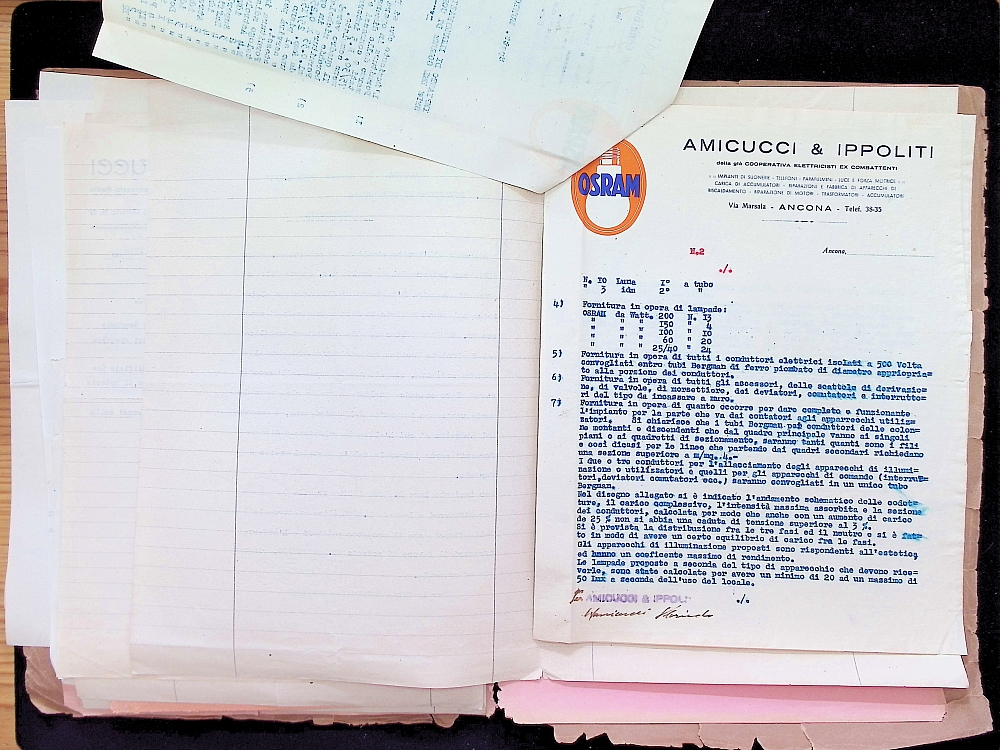 OSRAM
AMICUCCI & IPPOLITI
della già COOPERATIVA ELETTRICISTI EX COMBATTENTI
IMPIANTI DI SUONERIE - TELEFONI - PARAFULMINI - LUCE E FORZA MOTRICE
CARICA DI ACCUMULATORI - RIPARAZIONI E FABBRICA DI APPARECCHI DI
RISCALDAMENTO - RIPARAZIONE DI MOTORI - TRASFORMATORI - ACCUMULATORI
Via Marsala - ANCONA - Telef. 38-35
N.2
Ancona,
./.
N. IO Luna I° a tubo
" 3 idm 2° "
4) Fornitura in opera di lampade:
OSRAM da Watt. 200 N. 13
" " " 150 " 4
" " " 100 " IO
" " " 60 " 20
" " " 25/40 " 24
5) Fornitura in opera di tutti i conduttori elettrici isolati a 500 Volta
convogliati entro tubi Bergman di ferro piombato di diametro appropria=
to alla porzione dei conduttori.
6) Fornitura in opera di tutti gli accessori, delle scattole di derivazio=
ne, di valvole, di morsettiere, dei deviatori, comutatori e interrutto=
ri del tipo da incassare a muro.
7) Fornitura in opera di quanto occorre per dare completo e funzionante
l'impianto per la parte che va dai contatori agli apparecchi utiliz=
zatori. Si chiarisce che i tubi Bergman per conduttori delle colon=
ne montanti o discendenti che dal quadro principale vanno ai singoli
piani o ai quadrotti di sezionamento, saranno tanti quanti sono i fili
e così dicasi per le linee che partendo dai quadri secondari richiedano
una sezione superiore a m/mq. 4.-
I due o tre conduttori per l'allacciamento degli apparecchi di illumi=
nazione o utilizzatori e quelli per gli apparecchi di comando (interrut=
tori,deviatori comutatori ecc.) saranno convogliati in un unico tubo
Bergman.
Nel disegno allegato si è indicato l'andamento schematico delle condot=
ture, il carico complessivo, l'intensità massima assorbita e la sezione
dei conduttori, calcolata per modo che anche con un aumento di carico
de 25 % non si abbia una caduta di tensione superiore al 3 %.
Si è prevista la distribuzione fra le tre fasi ed il neutro e si è fat=
to in modo di avere un certo equilibrio di carico fra le fasi.
Gli apparecchi di illuminazione proposti sono rispondenti all'estetica,
ed hanno un coeficente massimo di rendimento.
Le lampade proposte a seconda del tipo di apparecchio che devono rice=
verle, sono state calcolate per avere un minimo di 20 ad un massimo di
50 Lux a seconda dell'uso del locale.
AMICUCCI & IPPOLI
./.